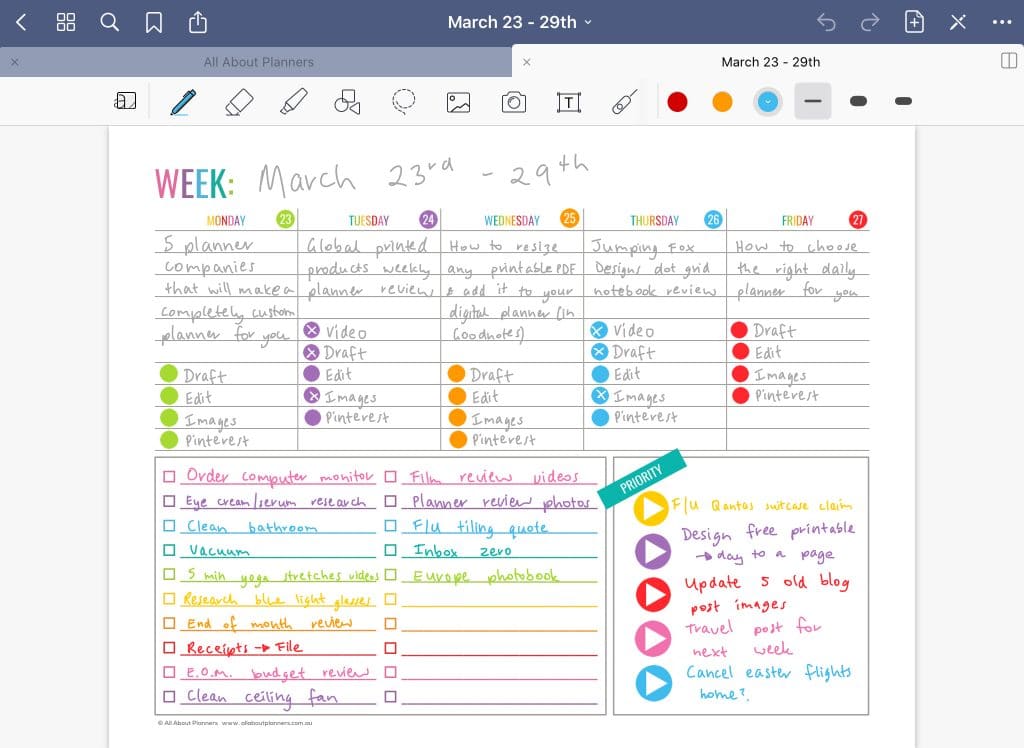 March 23 - 29th
All About Planners
March 23 - 29th
T
WEEK: March 23rd - 29th
MONDAY 23
5 planner
companies
that will make a
completely custom
planner for you
Draft
Edit
Images
Pinterest
TUESDAY 24
Global printed
products weekly
planner review
Video
Draft
Edit
Images
Pinterest
WEDNESDAY 25
How to resize
any printable PDF
& add it to your
digital planner (in
Goodnotes)
Draft
Edit
Images
Pinterest
THURSDAY 26
Jumping Fox
Designs dot grid
notebook review
Video
Draft
Edit
Images
Pinterest
FRIDAY 27
How to choose
the right daily
planner for you
Draft
Edit
Images
Pinterest
Order computer monitor
Eye cream/serum research
Clean bathroom
Vacuum
5 min yoga stretches videos
Research blue light glasses
End of month review
Receipts → File
E.O.M. budget review
Clean ceiling fan
Film review videos
Planner review photos
F/U tiling quote
Inbox zero
Europe photobook
PRIORITY
F/U Qantas suitcase claim
Design free printable
→ day to a page
Update 5 old blog
post images
Travel post for
next week
Cancel easter flights
home?
© All About Planners www.allaboutplanners.com.au